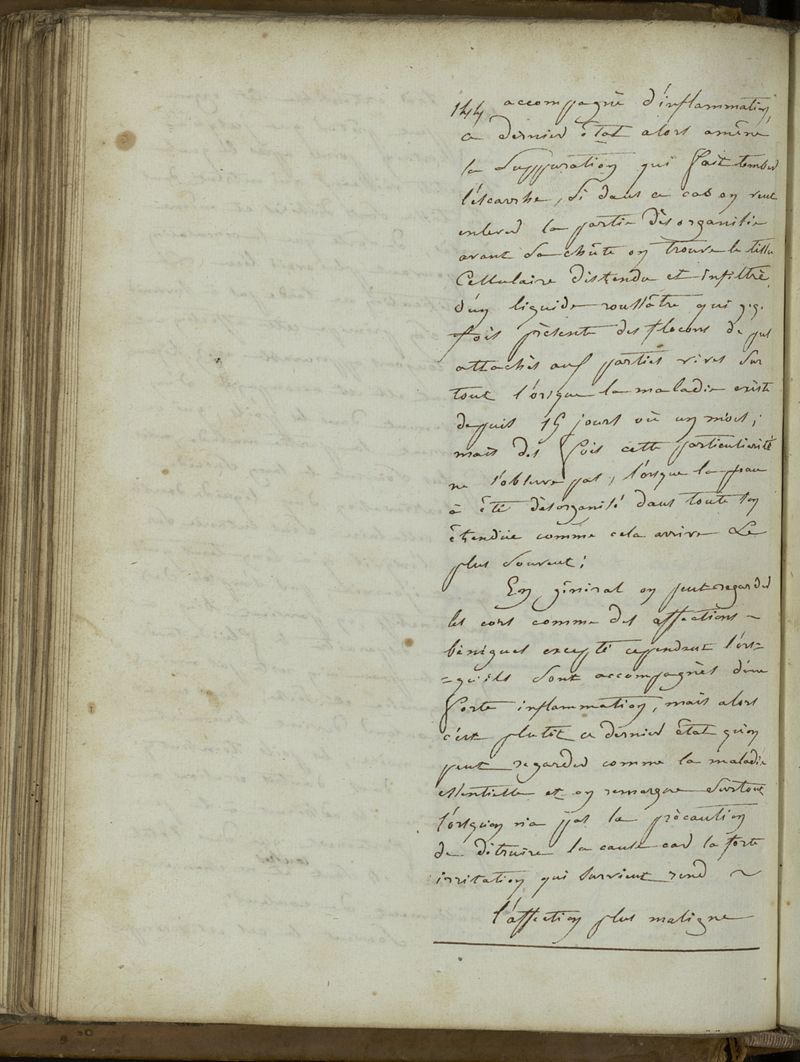 144 accompagnè d'inflammation,
ce dernier ètat alors amène
la Suppuration qui fait tomber
l'èscarrhe, Si dans ce cas on veut
enlever la partie dèsorganisèe
avant Sa chûte on trouve le tissu
Cellulaire distendu et infiltrè
d'un liquide roussâtre qui q.q.
fois prèsente des flocons de pus
attachès aux parties vives Sur
tout l'orsque la maladie existe
depuis 15 jours où un mois;
mais des fois cette particularitè
ne s'observe pas, l'orsque la peau
à ètè dèsorganisè dans toute son
ètendüe comme cela arrive Le
plus Souvent;
En gènèral on peut regarder
les cors comme des affections
bènignes exceptè cependant l'ors=
=qu'ils Sont accompagnès d'une
forte inflammation, mais alors
c'est plutôt ce dernier ètat qu'on
peut regarder comme la maladie
essentielle et on remarque Surtout
l'orsqu'on n'a pas la prècaution
de dètruire la cause car la forte
irritation qui Survient rend ~
l'affection plus maligne